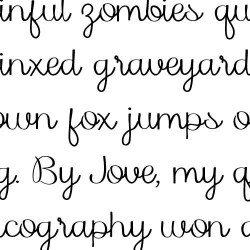 inful zombies qu
inxed graveyard
own fox jumps o
g. By Jove, my q
cography won a